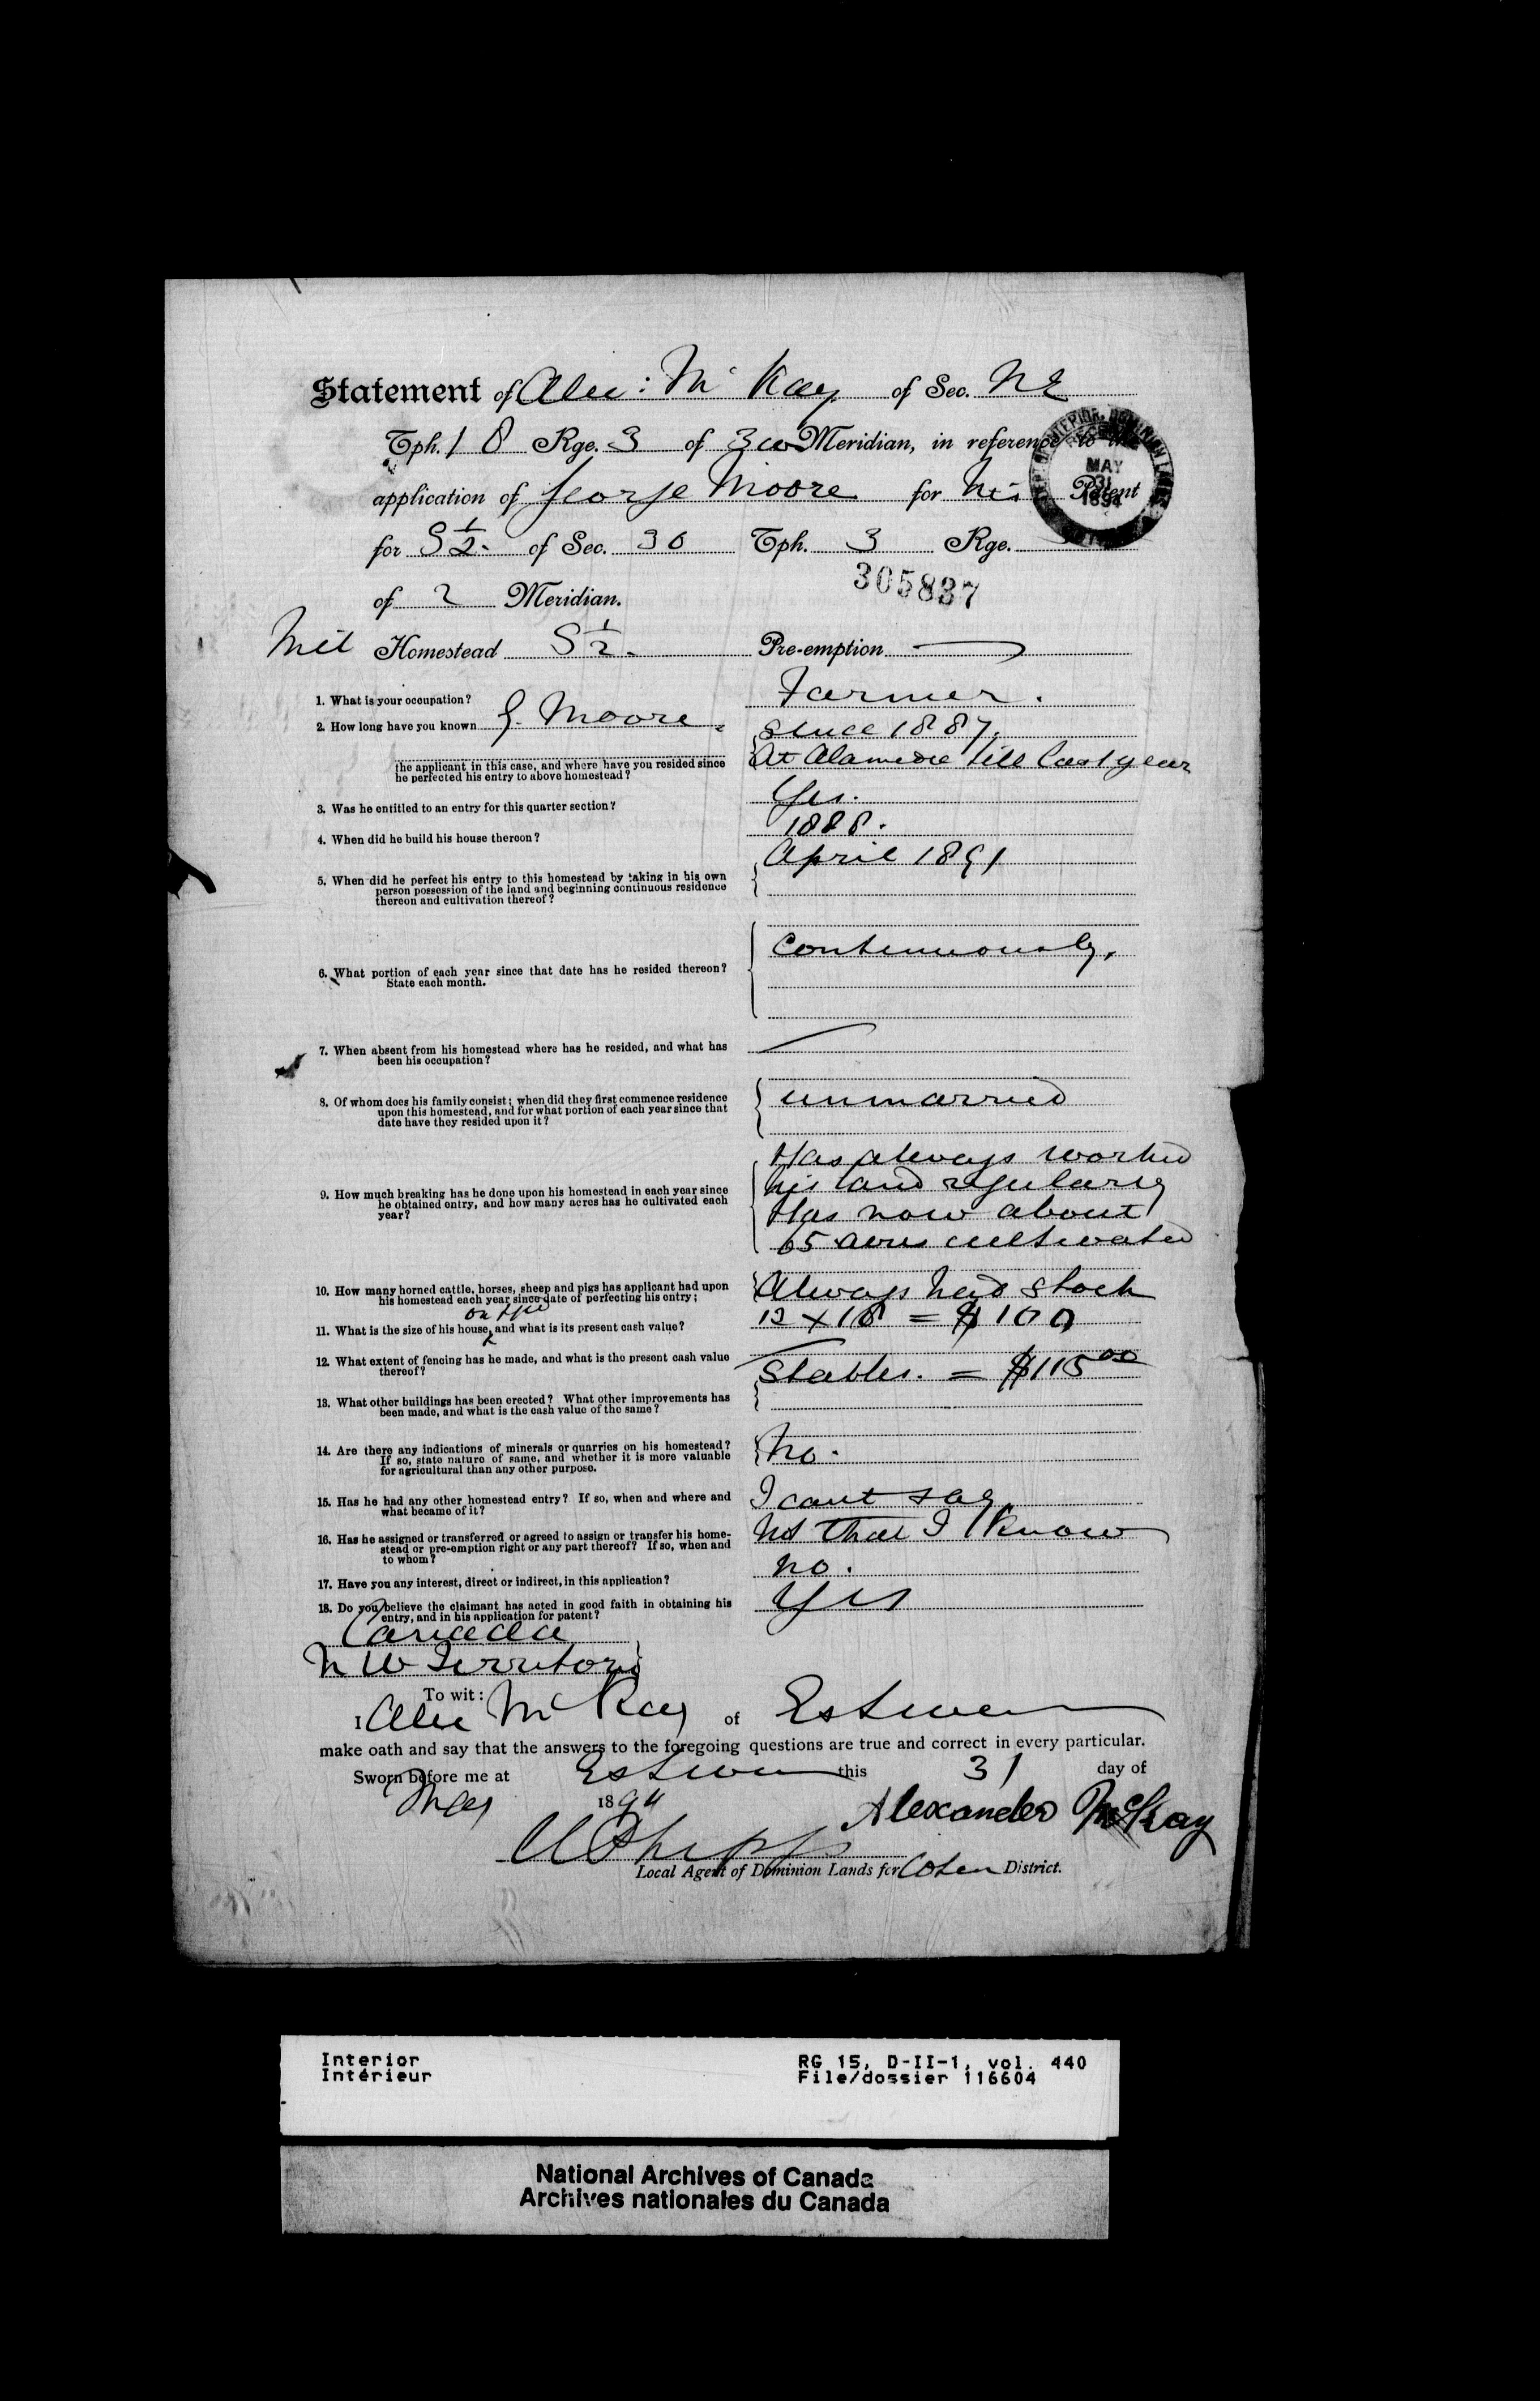 Statement of Alec: Mc Kay of Sec. NE
Tph. 18 Rge. 3 of 3 w Meridian, in reference to the
application of George Moore for his Patent
for S ½. of Sec. 30 Tph. 3 Rge.
MAY
31
1894
305837
of 2 Meridian.
Mil Homestead S ½. Pre-emption
1. What is your occupation? Farmer.
2. How long have you known G. Moore. since 1887.
the applicant in this case, and where have you resided since he perfected his entry to above homestead? At Alameda till last year
3. Was he entitled to an entry for this quarter section? Yes.
4. When did he build his house thereon? 1888.
5. When did he perfect his entry to this homestead by taking in his own April 1891
person possession of the land and beginning continuous residence
thereon and cultivation thereof?
6. What portion of each year since that date has he resided thereon? Continuously.
State each month.
7. When absent from his homestead where has he resided, and what has
been his occupation?
8. Of whom does his family consist; when did they first commence residence unmarried
upon this homestead, and for what portion of each year since that
date have they resided upon it?
9. How much breaking has he done upon his homestead in each year since
he obtained entry, and how many acres has he cultivated each
year?
Has always worked
his land regularly
Has now about
65 acres cultivated
10. How many horned cattle, horses, sheep and pigs has applicant had upon Always had stock
his homestead each year since date of perfecting his entry;
11. What is the size of his house, and what is its present cash value? 12 x 18 = $100
12. What extent of fencing has he made, and what is the present cash value
thereof?
Stables. = $115 00
13. What other buildings has been erected? What other improvements has
been made, and what is the cash value of the same?
14. Are there any indications of minerals or quarries on his homestead? No.
If so, state nature of same, and whether it is more valuable
for agricultural than any other purpose.
15. Has he had any other homestead entry? If so, when and where and I cant say
what became of it?
16. Has he assigned or transferred or agreed to assign or transfer his home- Not that I Know
stead or pre-emption right or any part thereof? If so, when and
to whom?
17. Have you any interest, direct or indirect, in this application? no.
18. Do you believe the claimant has acted in good faith in obtaining his Yes
entry, and in his application for patent?
Canada
N W Territory
To wit:
I Alec Mc Kay of Estevan
make oath and say that the answers to the foregoing questions are true and correct in every particular.
Sworn before me at Estevan this 31 day of
May 1894
Alexander McKay
Local Agent of Dominion Lands for Coteau District.
Interior
Intérieur
RG 15, D-II-1, vol. 440
File/dossier 116604
National Archives of Canada
Archives nationales du Canada